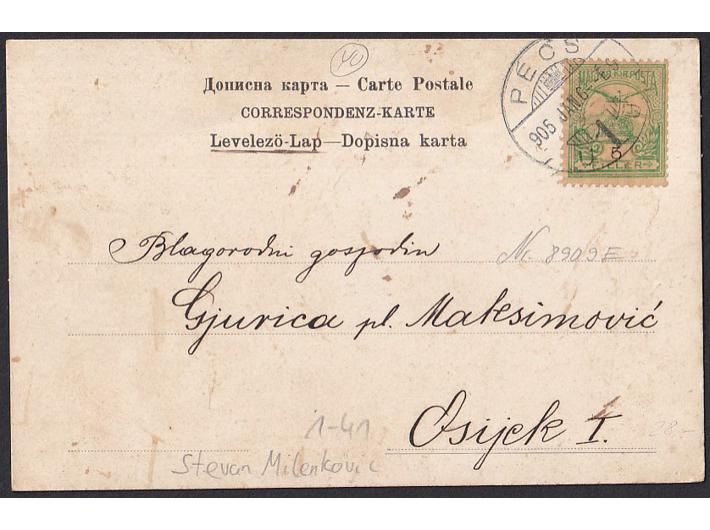 40
Дописна карта — Carte Postale
CORRESPONDENZ-KARTE
Levelező-Lap—Dopisna karta
PECS
905 JAN. 6
5
Blagorodni gospodin
N. 8909 E
Gjurica pl. Maksimović
Osijek I.
1-41
28-
Stevan Milenkovic